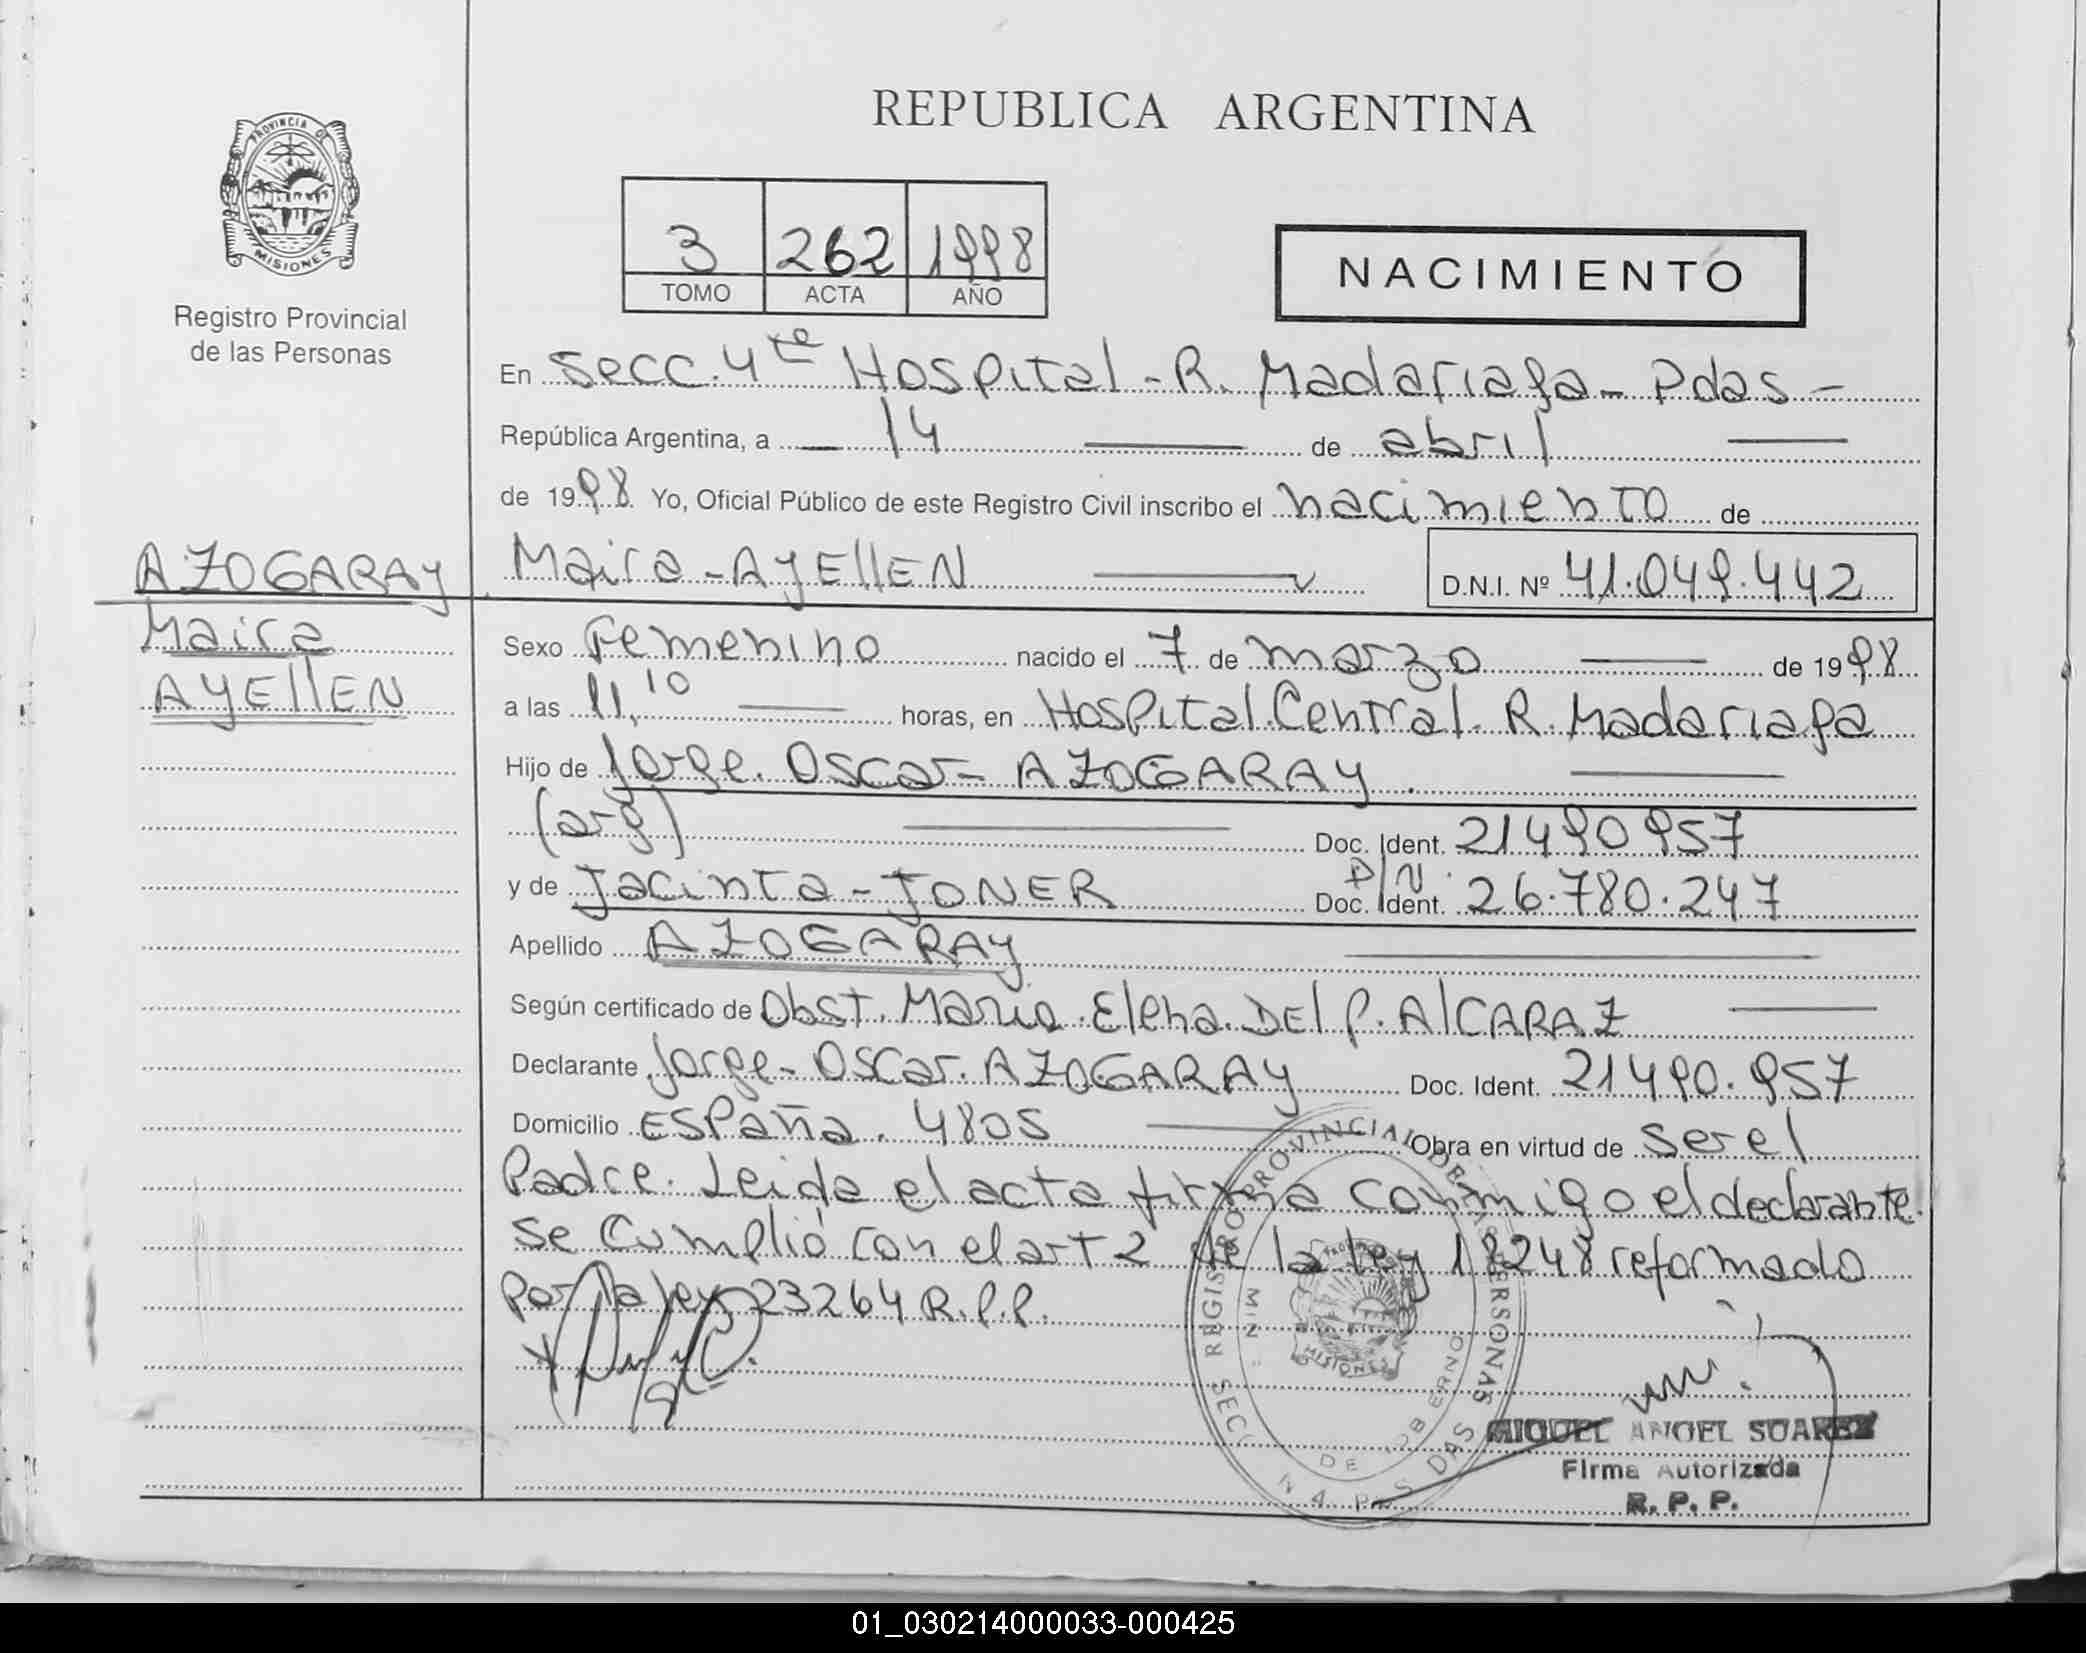 REPUBLICA ARGENTINA
PROVINCIA DE
MISIONES
Registro Provincial
de las Personas
3 262 1998
TOMO ACTA AÑO
NACIMIENTO
En Secc. 4te Hospital - R. Madariaga - Pdas -
República Argentina, a 14 de abril
de 1998 Yo, Oficial Público de este Registro Civil inscribo el nacimiento de
AZOGARAY
Maira
AYEllEN
Maira - AYEllEN D.N.I. Nº 41.049.442
Sexo Femenino nacido el 7 de marzo de 1998
a las 11,10 horas, en Hospital Central R. Madariaga
Hijo de Jorge Oscar - AZOGARAY
(arg) Doc. Ident. 21490957
y de Jacinta - JONER D/N Doc. Ident. 26.780.247
Apellido AZOGARAY
Según certificado de Obst. Maria Elena DEl P. AlCARAZ
Declarante Jorge - Oscar AZOGARAY Doc. Ident. 21490.957
Domicilio ESPaña. 4805 Obra en virtud de ser el
Padre. Leida el acta firma conmigo el declarante.
Se Cumplió con el art 2 de la ley 18248 reformado
por la ley 23264 R.P.P.
REGISTRO PROVINCIAL DE LAS PERSONAS
MISIONES
MIGUEL ANGEL SUAREZ
Firma Autorizada
R. P. P.
01_030214000033-000425